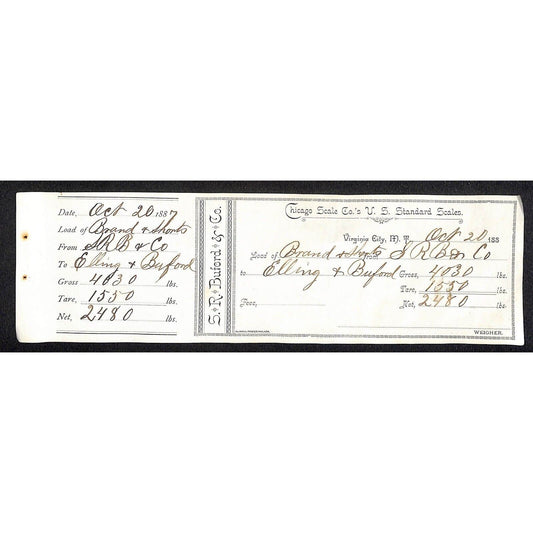 Date, Oct 20 1887
Load of Brand & Shorts
From S.R.B & Co
To Elling & Buford
Gross 4030 lbs.
Tare, 1550 lbs.
Net, 2480 lbs.
S. R. Buford & Co.
Chicago Scale Co.'s U. S. Standard Scales.
Virginia City, M. T. Oct 20 188
Load of Brand & Shorts S R B & Co
to Elling & Buford Gross, 4030 lbs.
Tare, 1550 lbs.
Fees, Net, 2480 lbs.
WEIGHER.